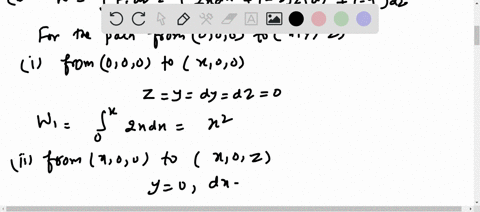 For the path from (0,0,0) to (x,y,z)
(i) from (0,0,0) to (x,0,0)
z=y=dy=dz=0
W₁ = ∫₀ˣ 2xdx = x²
(ii) from (x,0,0) to (x,0,z)
y=0, dx-